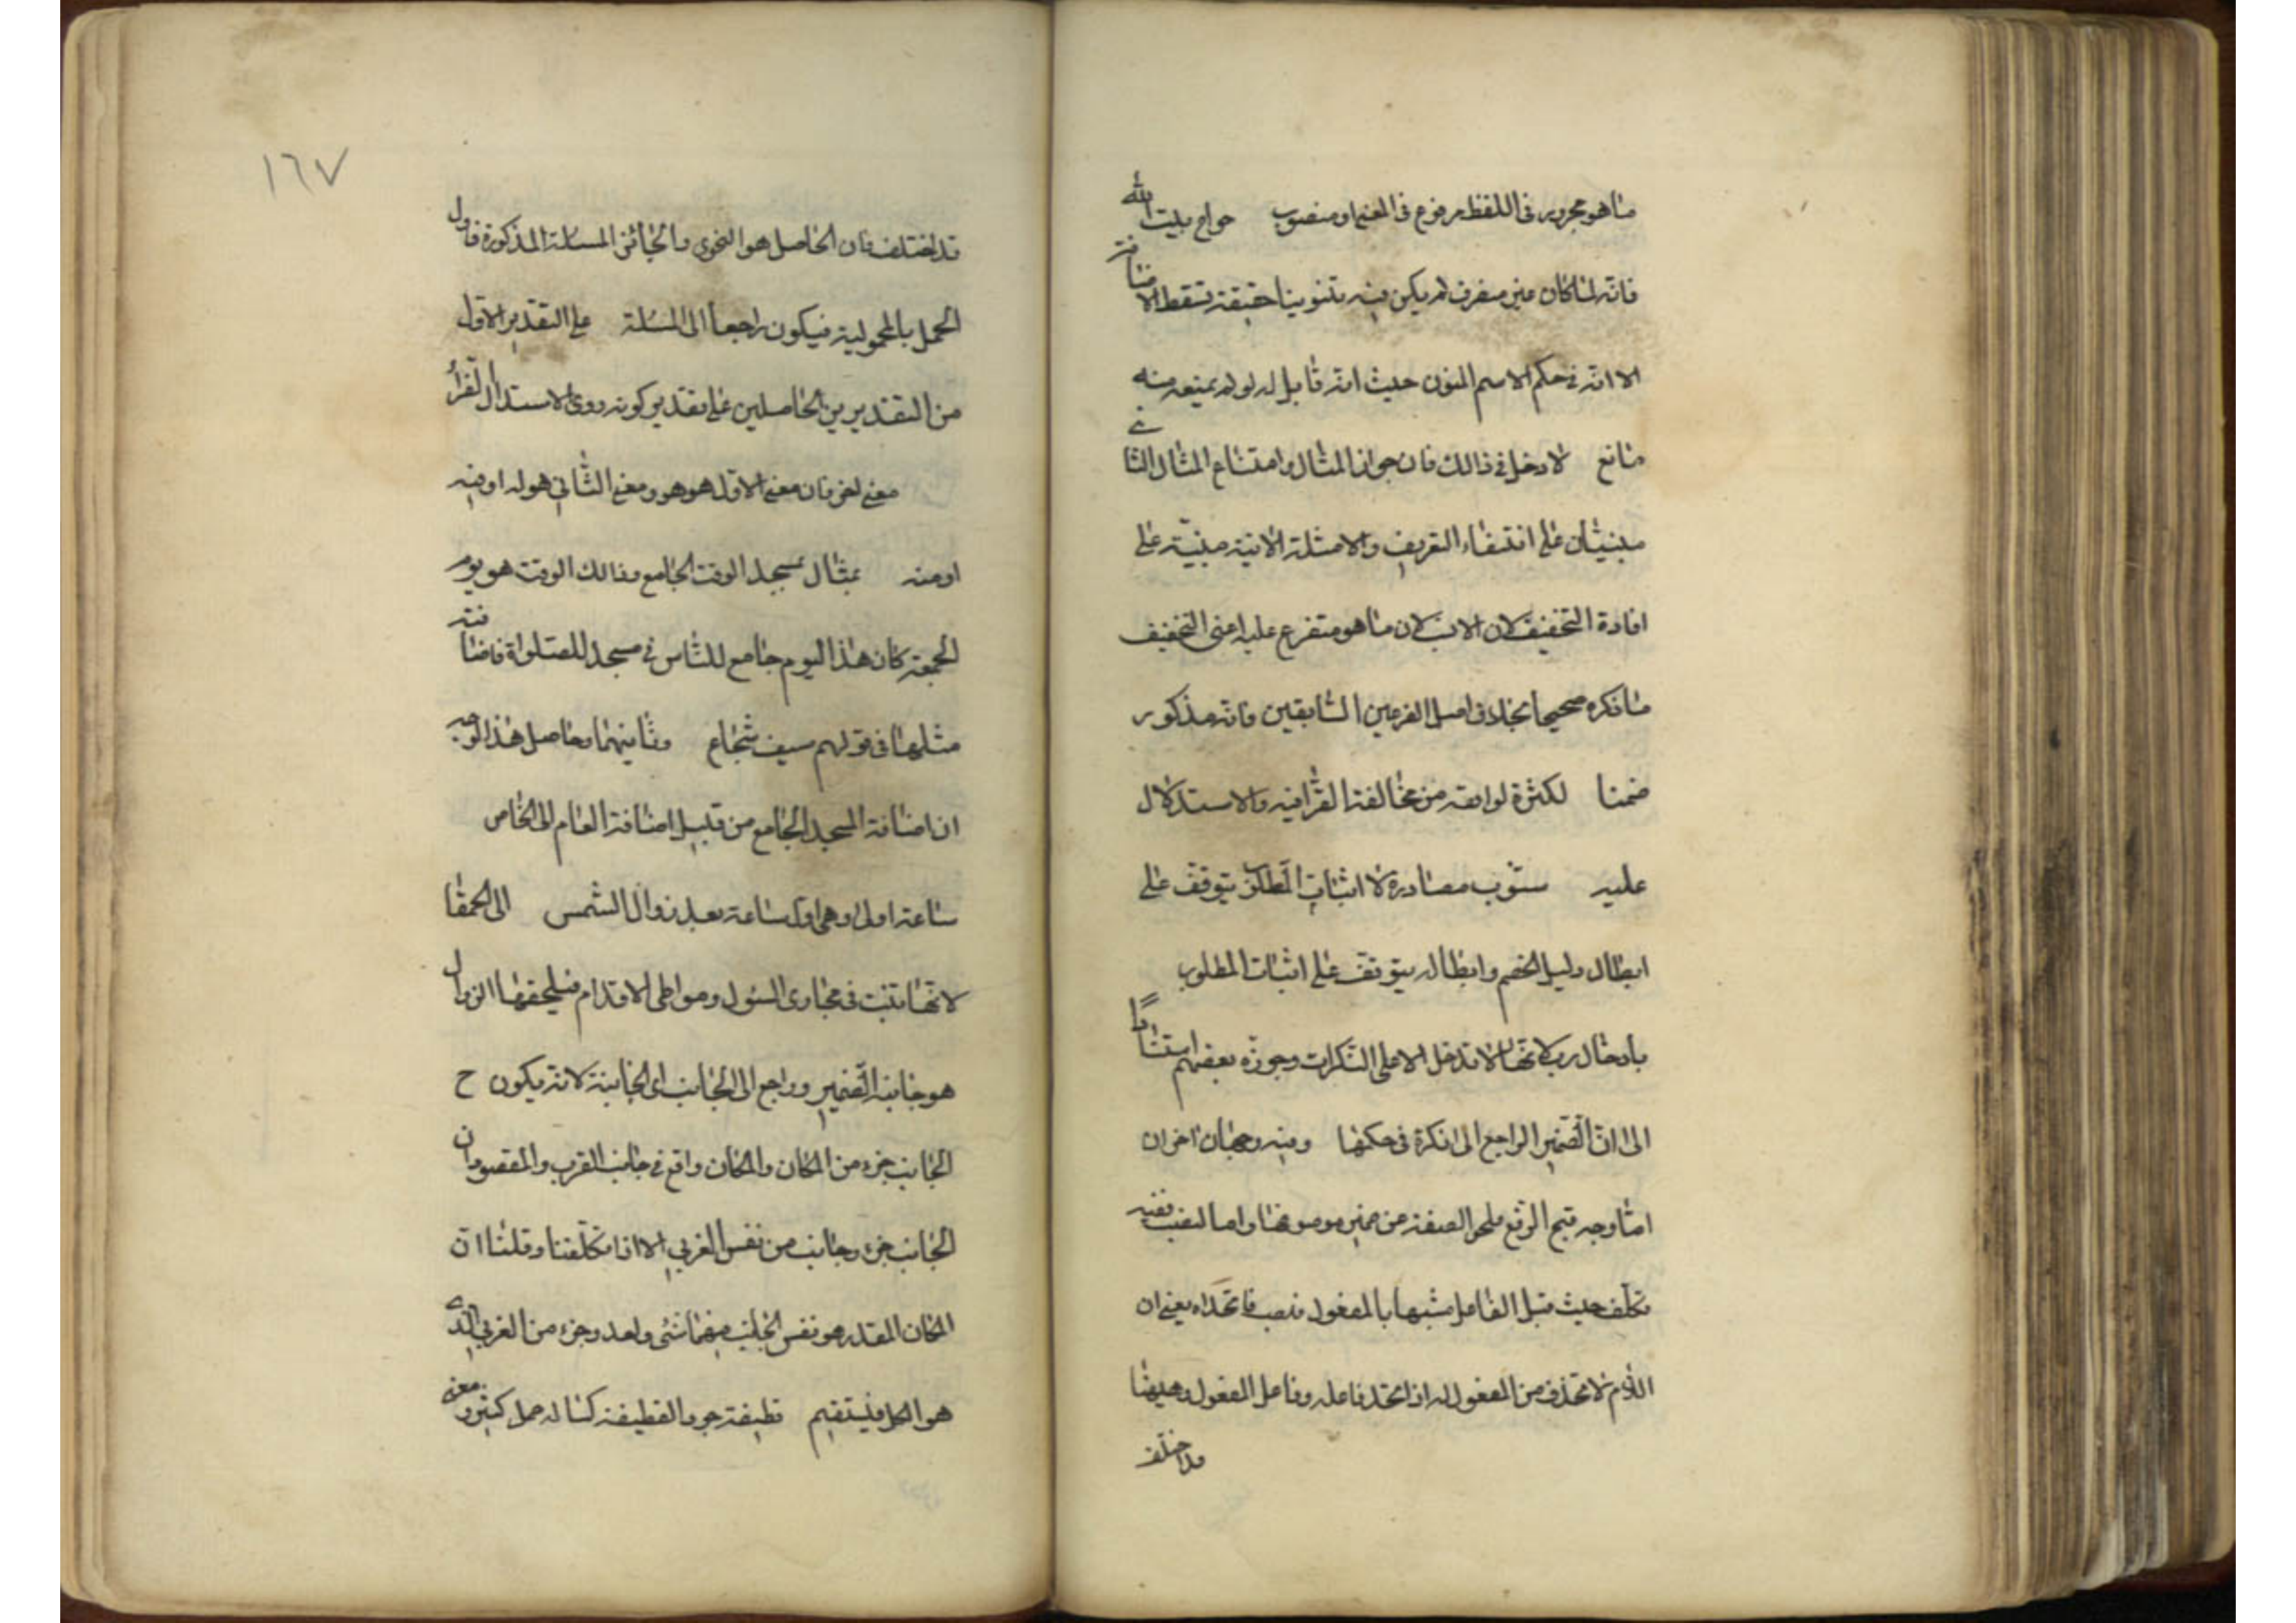 ما هو مجرور في اللفظ مرفوع في المعنى او منصوب حواج بيت الله
فانه لما كان غير منصرف لم يكن فيه تنوينا حقيقة تسقط الاضافة
الا انه في حكم الاسم المنون حيث انه قابل له لو لم يمنعه منه
مانع لا دخل في ذالك فان جواز المثال وامتناع المثال الثاني
مبنيان على انتفاء التعريف والامثلة الاتية مبنية على
افادة التخفيف لان ما هو متفرع عليه اعنى التخفيف
ما ذكره صحيحا بخلاف اصل الفرعين السابقين فانه مذكور
ضمنا لكثرة لواحقه من مخالفة الفراء فيه والاستدلال
عليه ستوب مصادرة لا اثبات المط يتوقف على
ابطال دليل الخصم وابطاله يتوقف على اثبات المطلوب
بادخال رب لانها لا تدخل الا على النكرات وجوزه بعضهم استنادا
الى ان الضمير الراجع الى نكرة في حكمها وفيه وجهان اخران
اما وجه قبح الرفع فلخلو الصفة من ضمير موصوفها واما النصب ففيه
تكلف حيث قبل الفاعل مشبها بالمفعول فنصب فاتحداه يعني ان
اللام لا تحذف من المفعول له اذا اتحد فاعله وفاعل المفعول وههنا
قد اختلف
١٦٧
قد اختلف فان الحاصل هو النحوى والجائز المسئلة المذكورة فاول
الحمل بالمحمولية فيكون راجعا الى المسئلة على التقدير الاول
من التقديرين الحاصلين على تقدير كونه روى الاستدلال الفراء
معنى لغى فان معنى الاول هو هو ومعنى الثاني هو له او فيه
او منه بمثال مسجد الوقت الجامع وذالك الوقت هو يوم
الجمعة كان هذا اليوم جامع للناس في مسجد للصلواة فاضافته
مثلها في قولهم سيف شجاع وثانيهما وحاصل هذا الوجه
ان اضافة المسجد الجامع من قبيل اضافة العام الى الخاص
ساعة اولى وهى اول ساعة بعد زوال الشمس الى الحمقا
لانها تنبت في مجارى السيول ومواطى الاقدام فيلحقها الزوال
هو جانبه الضمير وراجع الى الجانب اى الجانبية لانه يكون ح
الجانب جزء من المكان والمكان واقع في جانب الغرب والمقصود ان
الجانب جزء وجانب من نفس الغربي الا اذا تكلفنا وقلنا ان
المكان المقدر هو نفس الجانب فهما شئ واحد وجزء من الغربي الذى
هو الكل فيستقيم قطيفة جرد القطيفة كساله حمل كبير ومعنى